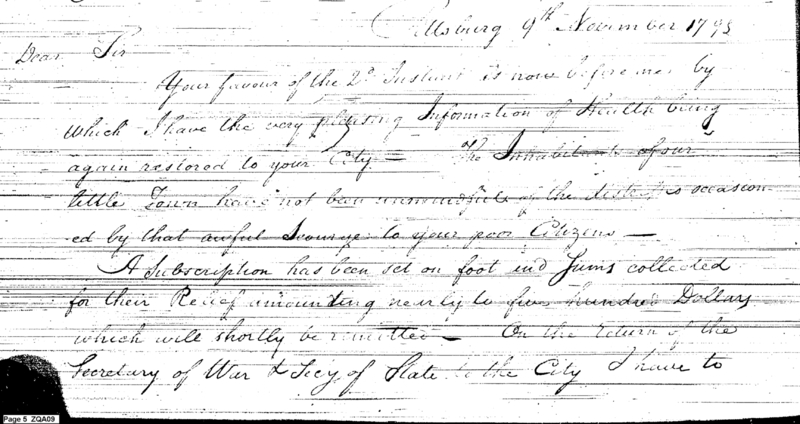 Pittsburg 9th November 1793
Dear Sir
Your favour of the 2d Instant is now before me by
which I have the very pleasing Information of Health being
again restored to your City — The Inhabitants of our
little Town have not been unmindful of the distress occasion
ed by that awful Scourge to your poor Citizens —
A Subscription has been set on foot and Sums collected
for their Relief amounting nearly to five hundred Dollars
which will shortly be remitted — On the return of the
Secretary of War & Secy of State to the City I have to
Page 5 ZQA09